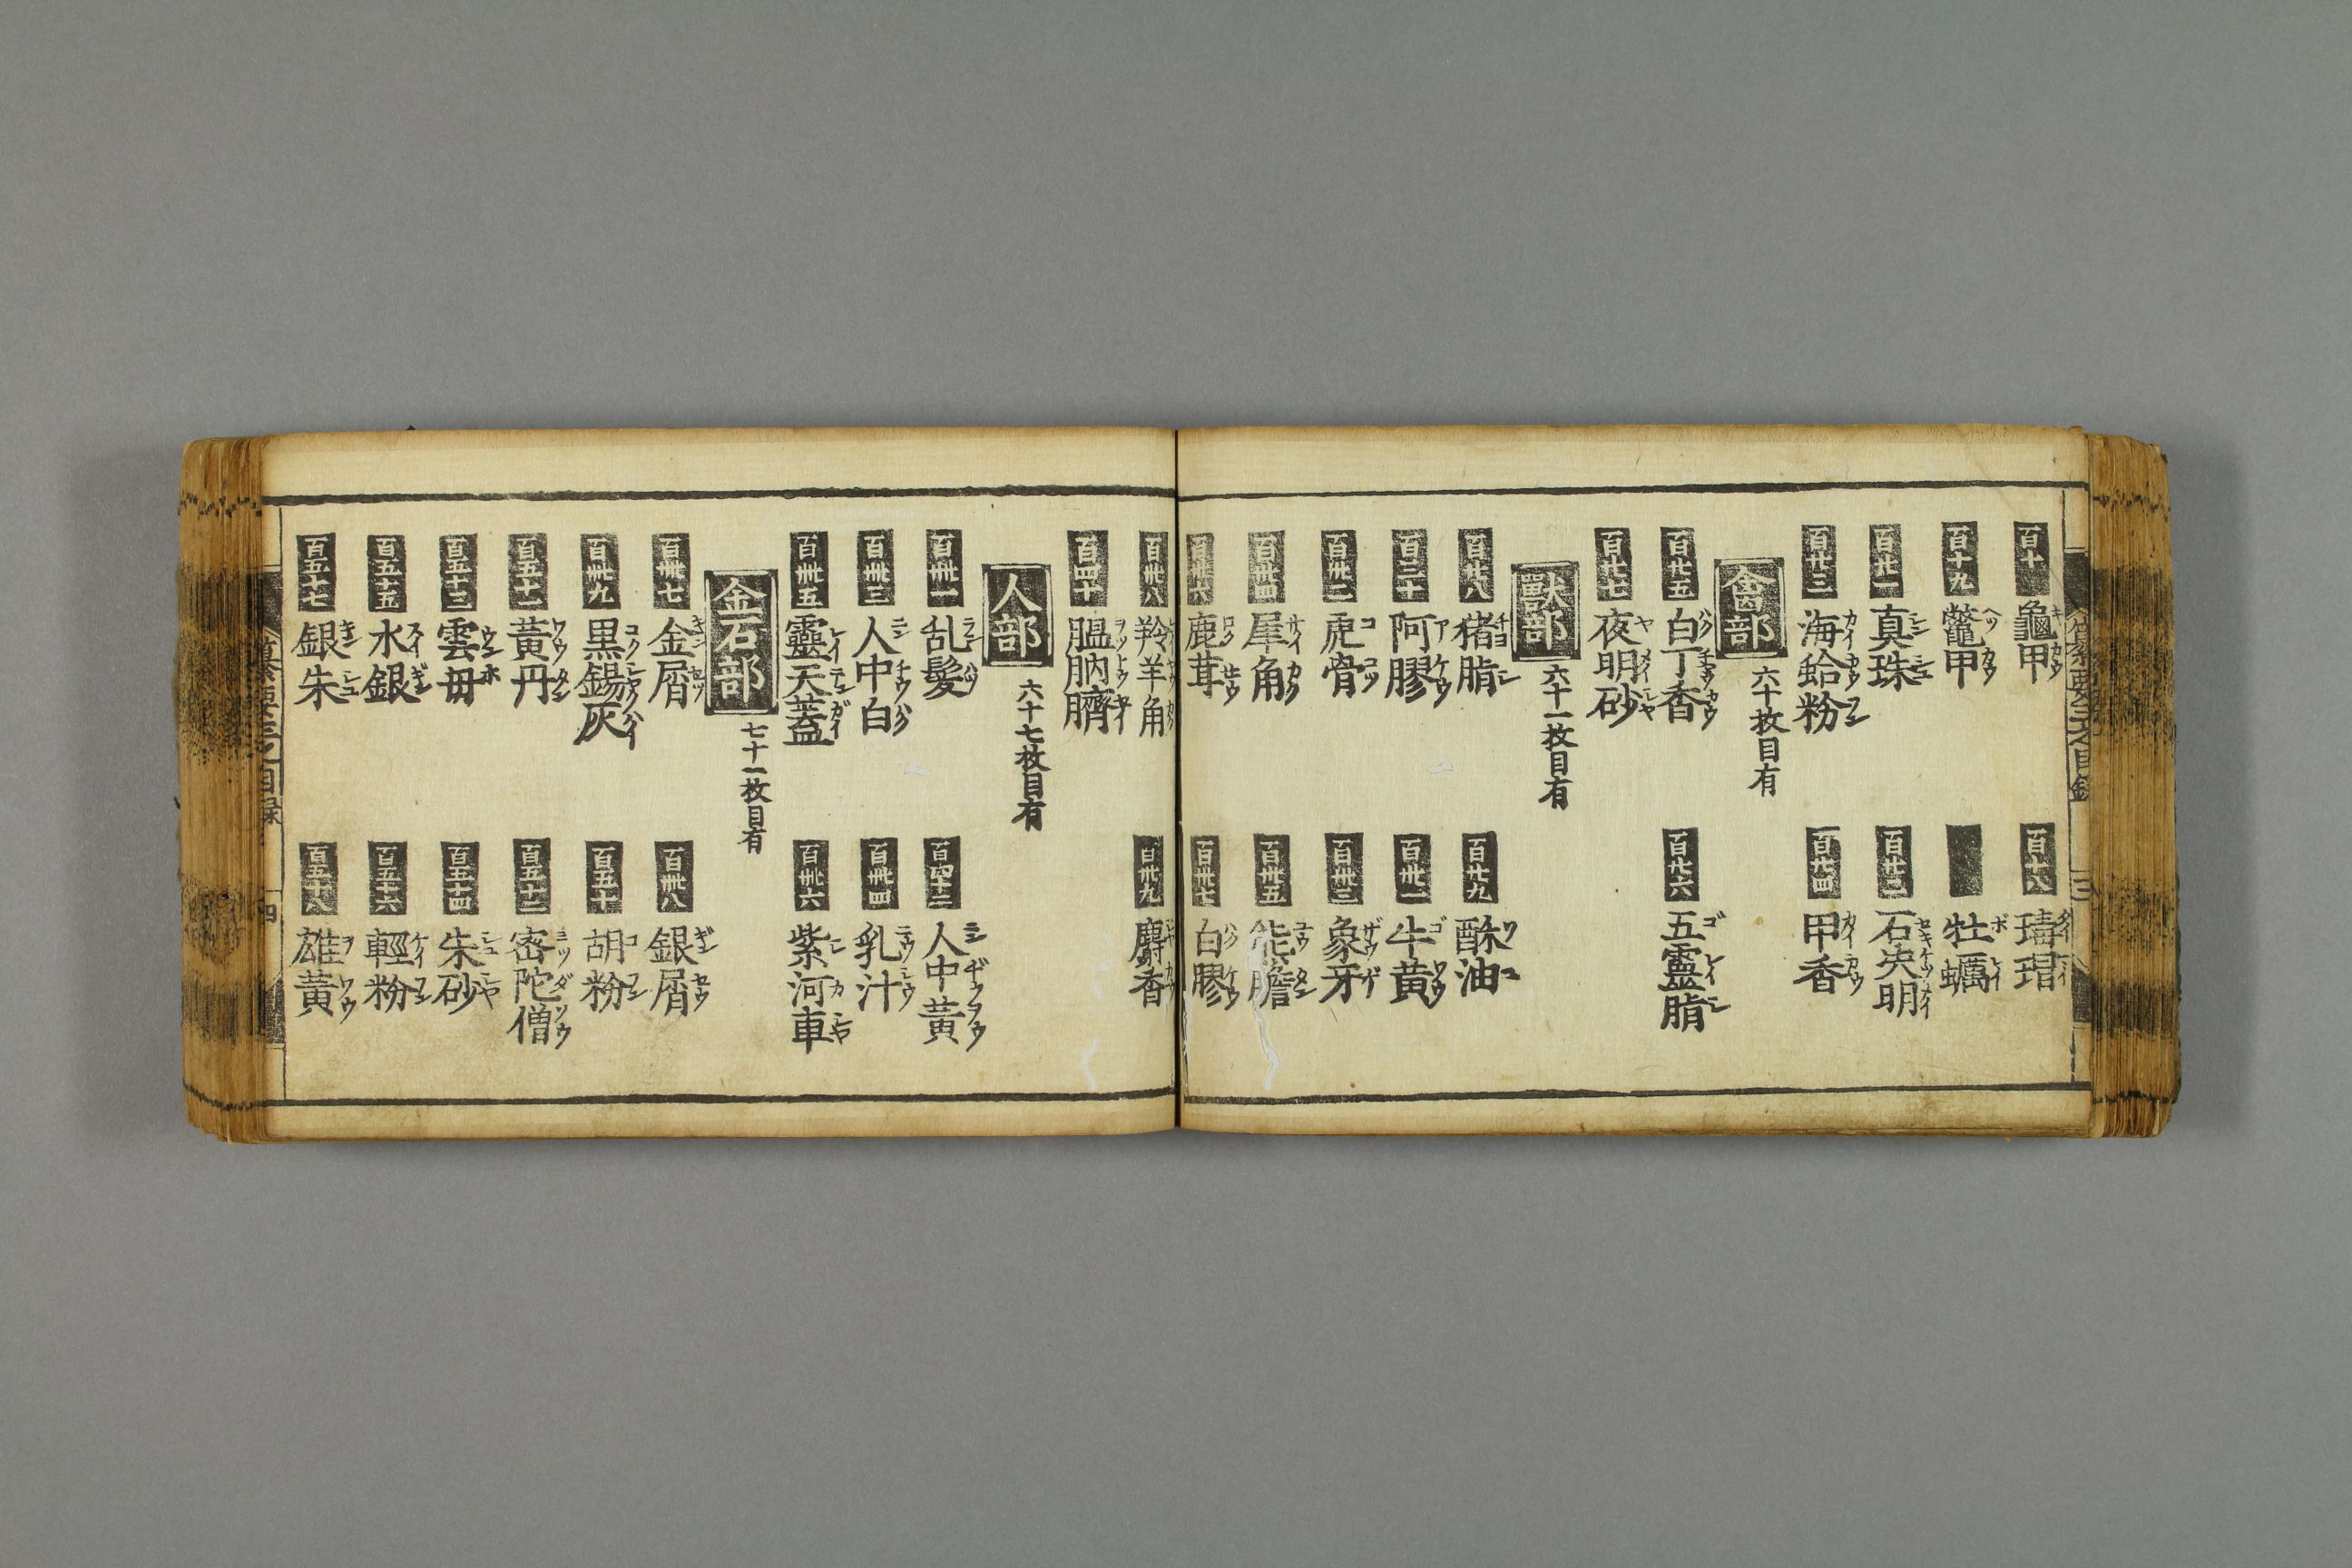 纂要 之目録 三
百十 龜甲 百十八 瑇瑁
百十九 鼈甲 牡蠣
百廿一 真珠 百廿二 石决明
百廿三 海蛤粉 百廿四 甲香
禽部 六十枚目有
百廿五 白丁香 百廿六 五靈脂
百廿七 夜明砂
獸部 六十一枚目有
百廿八 猪脂 百廿九 酥油
百三十 阿膠 百卅一 牛黄
百卅二 虎骨 百卅三 象牙
百卅四 犀角 百卅五 熊膽
百卅六 鹿茸 百卅七 白膠
百卅八 羚羊角 百卅九 麝香
百四十 膃肭臍
人部 六十七枚目有
百卌一 乱髮 百四十二 人中黄
百卌三 人中白 百卌四 乳汁
百卌五 靈天蓋 百卌六 紫河車
金石部 七十一枚目有
百卌七 金屑 百卌八 銀屑
百卌九 黒錫灰 百五十 胡粉
百五十一 黄丹 百五十二 密陀僧
百五十三 雲母 百五十四 朱砂
百五十五 水銀 百五十六 輕粉
百五十七 銀朱 百五十八 雄黄
纂要 之目録 四